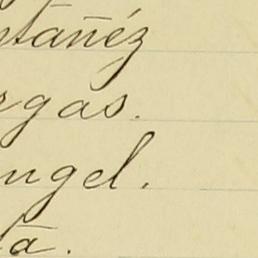 ntañéz
rgas.
ngel.
ta.